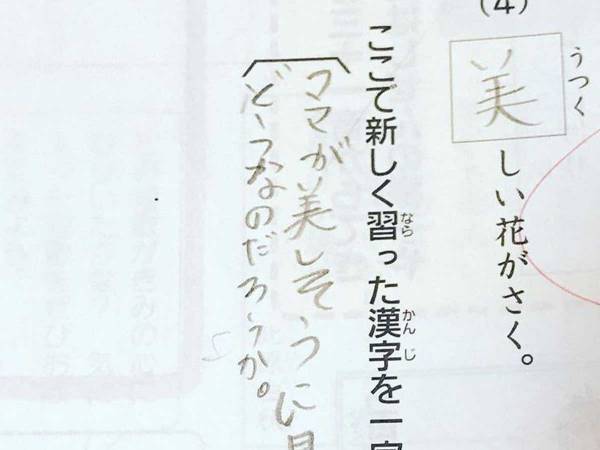 (4)
うつく
美しい花がさく。
なら かん じ
ここで新しく習った漢字を一
ママが美しそうに
どうなのだろうか。